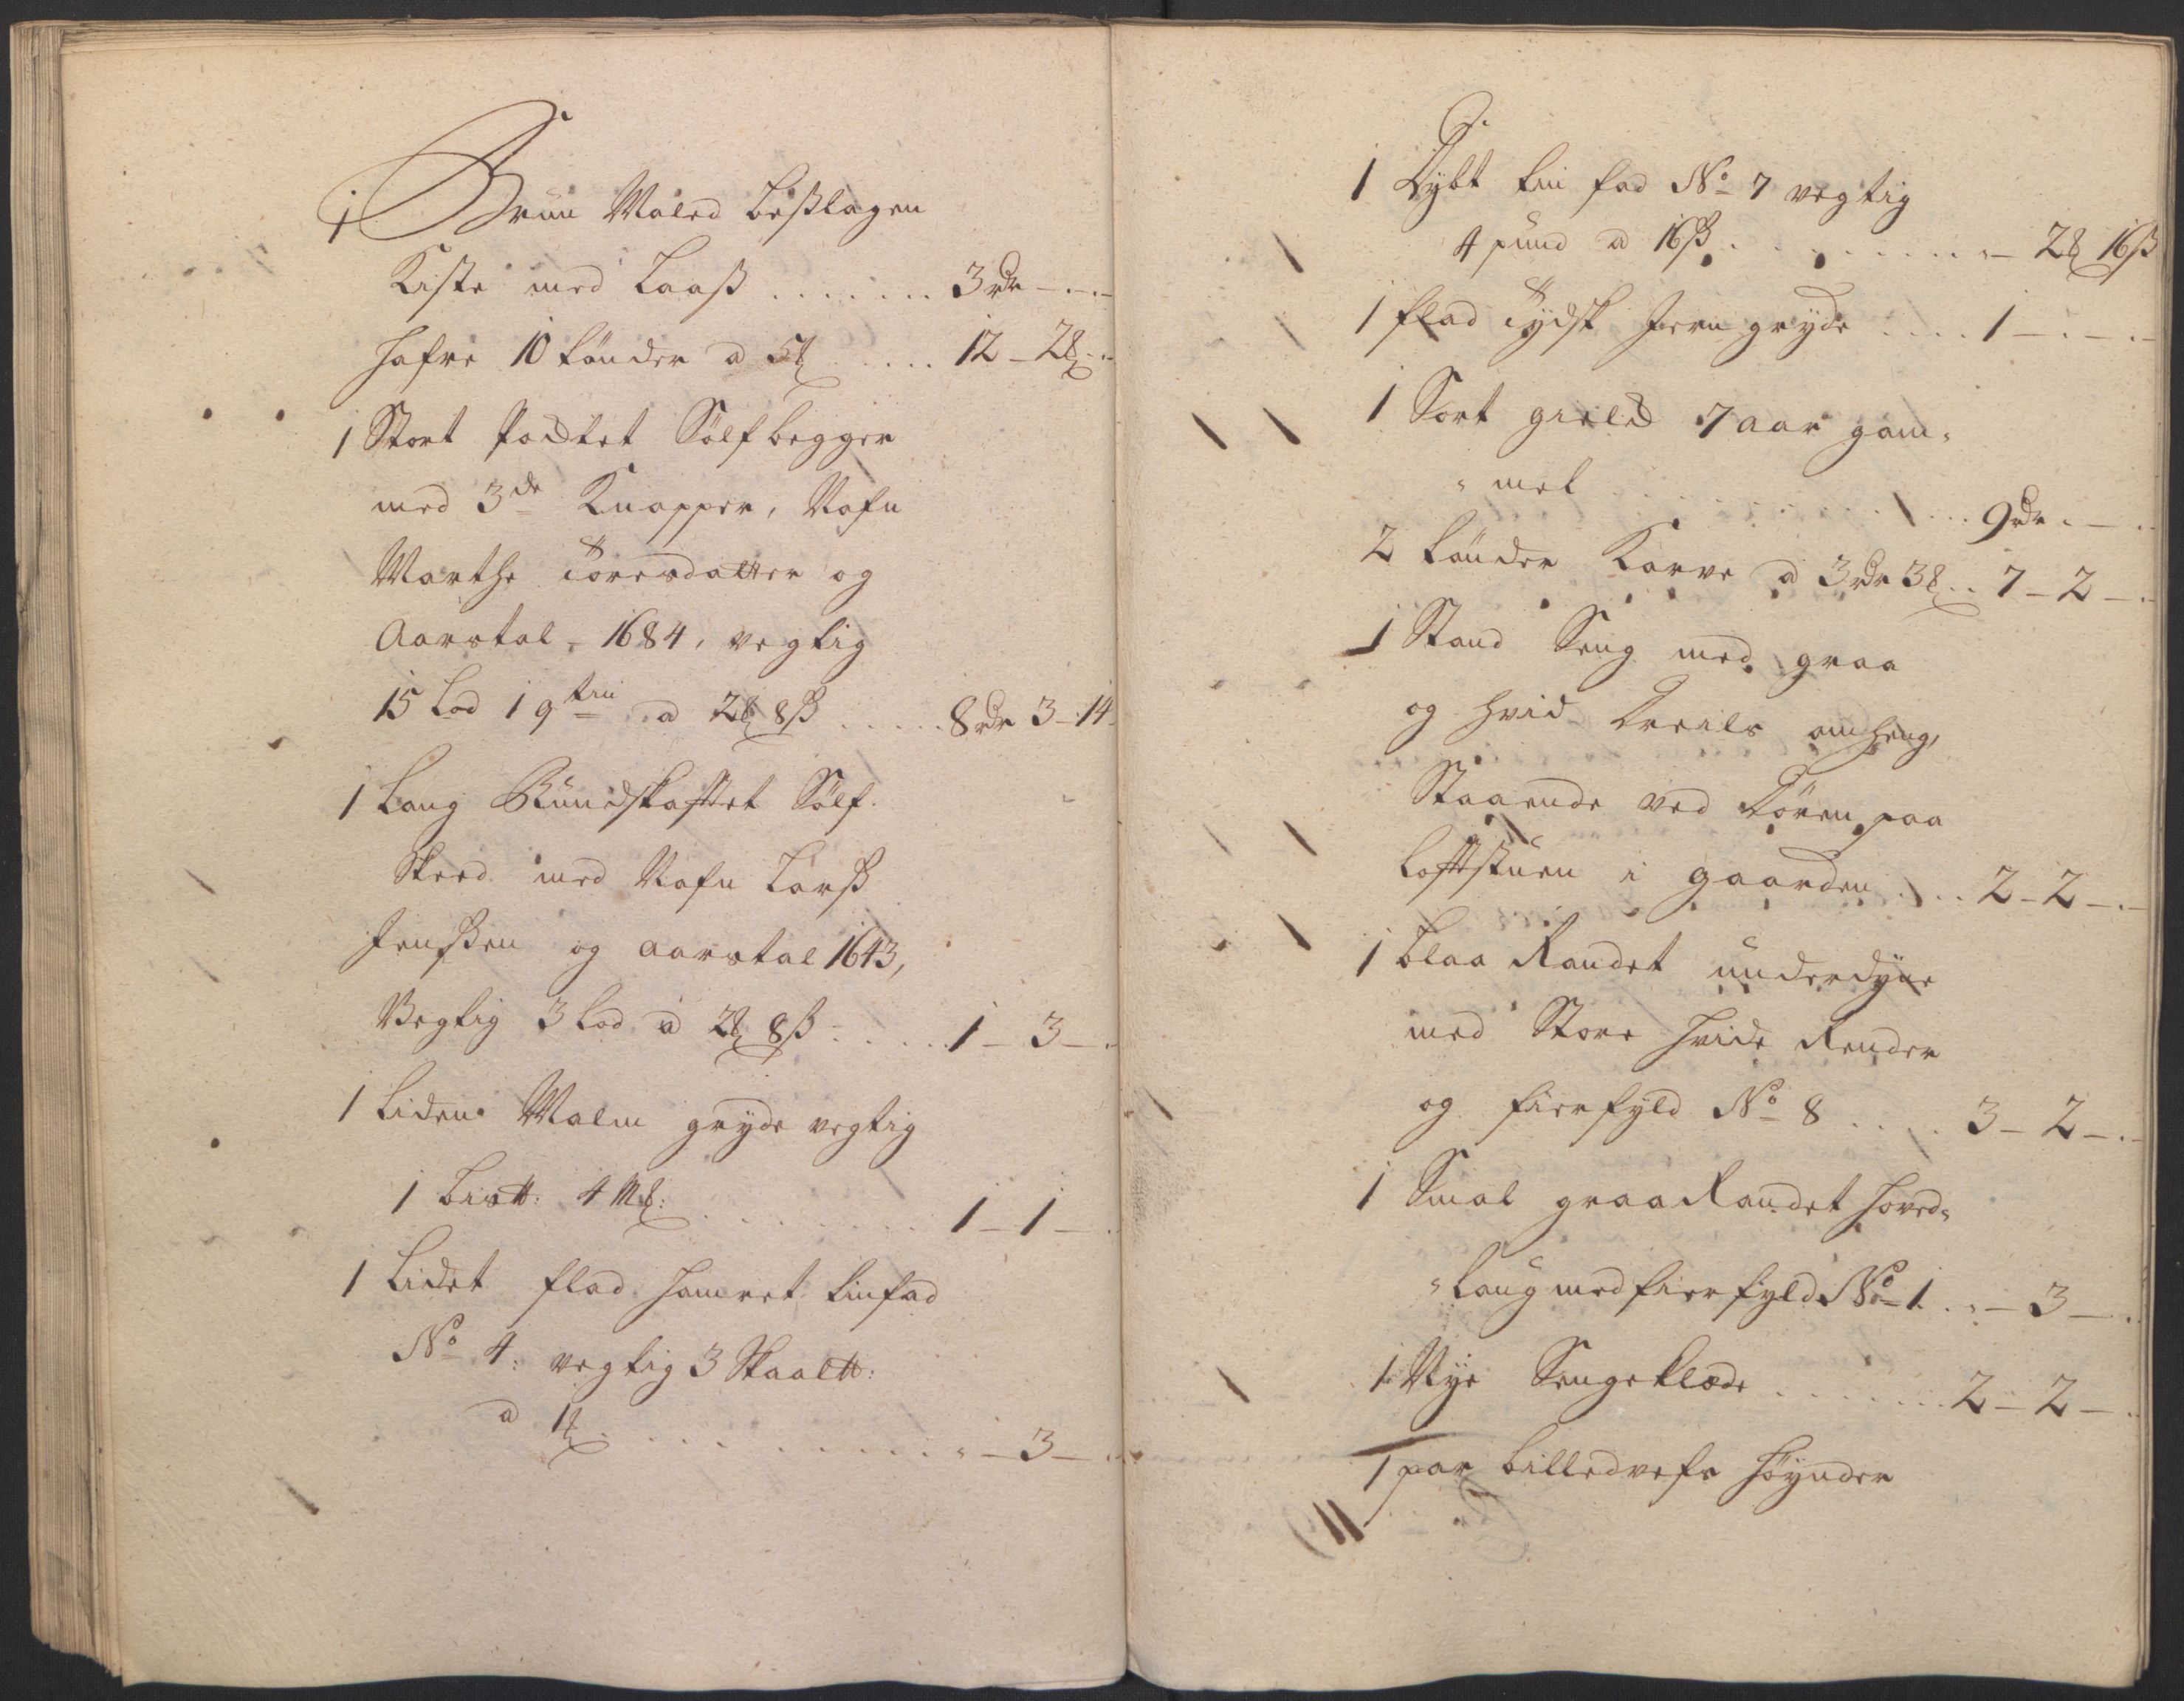 1 Bruun Maled beslagen
Kiste med Laas ....... 3 rdr - . -
Hafre 10 tønder a 5 ₰ .... 12 - 2 ₰ . -
1 Stort Sølf begger
med 3de Knapper, Nafn
Marthe Toresdatter og
Aarstal - 1684, vegtig
15 Lod 1 qtin a 2 ₰ 8 ß ..... 8 rdr 3 - 14
1 Lang Rundskaftet Sølf
Skeed med Nafn Larß
Jenßen og aarstal 1643,
Vegtig 3 Lod a 2 ₰ 8 ß ..... 1 - 3 - .
1 Liden Malm gryde vegtig
1 Bis℔: 4 M₰: ........ 1 - 1 -
1 Lidet flad hamret tinfad
No 4: vegtig 3 Skaal℔:
a 1 ₰ ............ - 3 - .
1 Dybt tin fad No 7 vegtig
4 pund a 16 ß ........... - 2 ₰ 16 ß
1 flad Tydsk Jern gryde .... 1 - . - . -
1 Sort gield 7 aar gam„
„mel ............ 9 rdr . - .
2 tønder Korne a 3 rdr 3 ₰ .. 7 - 2 - . -
1 Stand Seng med graa
og hvid Dreils omheng,
Staaende ved Døren paa
loftstuen i gaarden .... 2 - 2 - . -
1 blaa Randet underdyne
med Store hvide Render
og fierfyld No 8 .... 3 - 2 - . -
1 Smal graa Randet hoved„
„laug med fierfyld No 1 . „ - 3 - .
1 Nye Sengeklæde ....... 2 - 2 - .
1 par billedvefs høynder